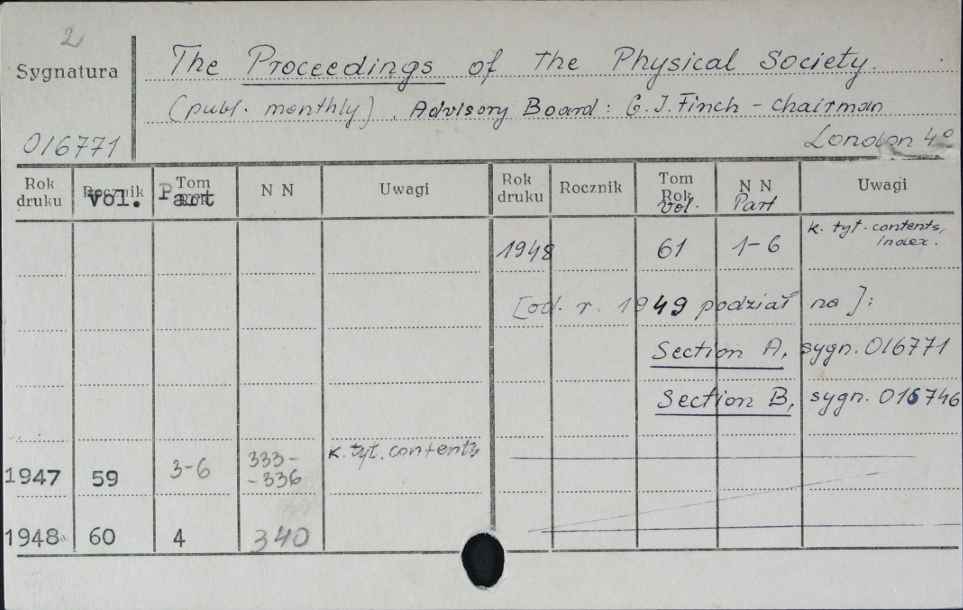 2
Sygnatura
The Proceedings of the Physical Society.
(publ. monthly). Advisory Board: G.J. Finch - chairman
016771
London 4°
Rok druku
Rocznik
vol.
Tom
Part
N N
Uwagi
Rok druku
Rocznik
Tom
Rok
Vol.
N N
Part
Uwagi
1948 61 1-6 k. tyt. contents,
index.
[od. r. 1949 podział na]:
Section A, sygn. 016771
Section B, sygn. 016746
1947 59 3-6 333-
-336 k. tyt. contents
1948 60 4 340